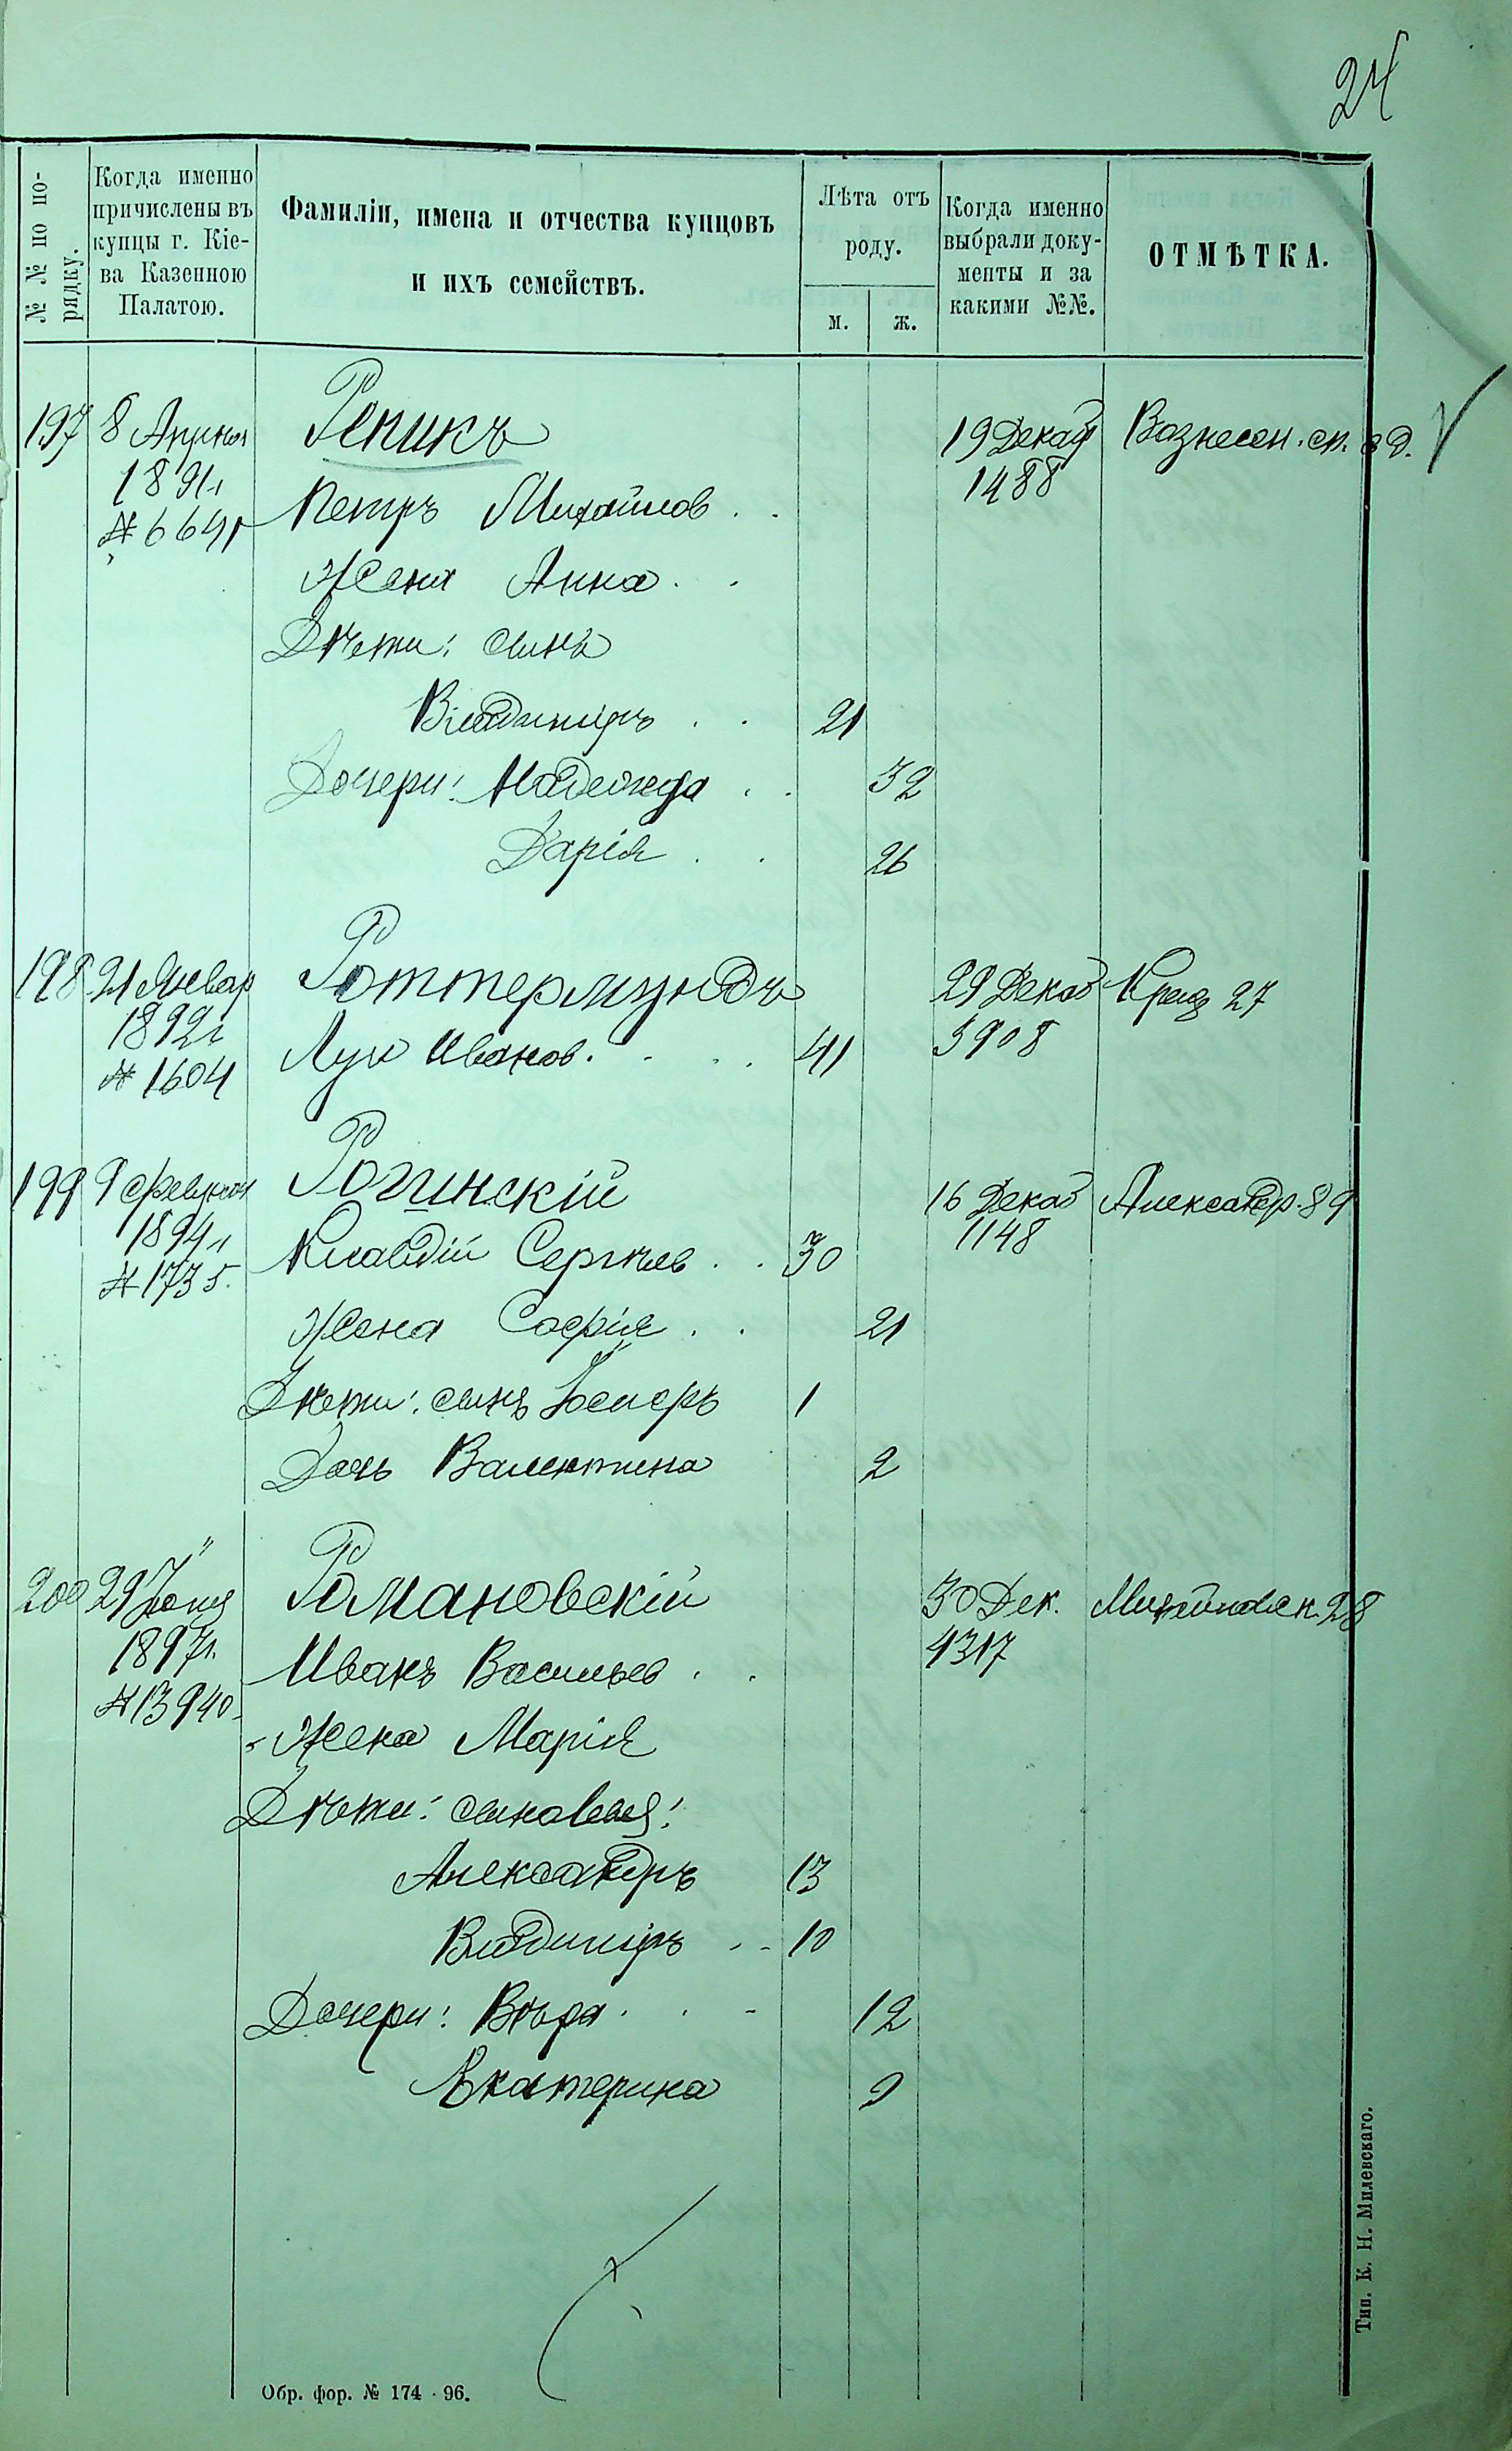 24
№ № по по-
рядку.
Когда именно
причислены въ
купцы г. Кіе-
ва Казенною
Палатою.
Фамиліи, имена и отчества купцовъ
и ихъ семействъ.
Лѣта отъ
роду.
м.
ж.
Когда именно
выбрали доку-
менты и за
какими №№.
ОТМѢТКА.
197 8 Апрѣля Репикъ 19 Декаб Вознесен. сп. с д.
1891 г 1488
№ 6641 Петръ Михайлов . .
Жена Анна . .
Дѣти: сынъ
Владиміръ . . 21
Дочери: Надежда . . 32
Дарія . . 26
198 21 Январ Роттермундъ 29 Декаб Крещ 27
1892 г 3908
№ 1604 Лука Иванов. . . . 41
199 9 февраля Рогинскій 16 Декаб Александр. 89
1894 г 1148
№ 1735. Клавдій Сергѣев . . 30
Жена Софія . . 21
Дѣти: сынъ 1
Дочь Валентина 2
200 29 Іюня Романовскій 30 Дек. Михайловск. 28
1897 г. 4317
№ 13940 Иванъ Васильев . .
Жена Марія
Дѣти: сыновья:
Александръ 13
Владиміръ . . 10
Дочери: Вѣра . . . 12
Екатерина 9
Обр. фор. № 174 - 96.
Тип. К. Н. Милевскаго.